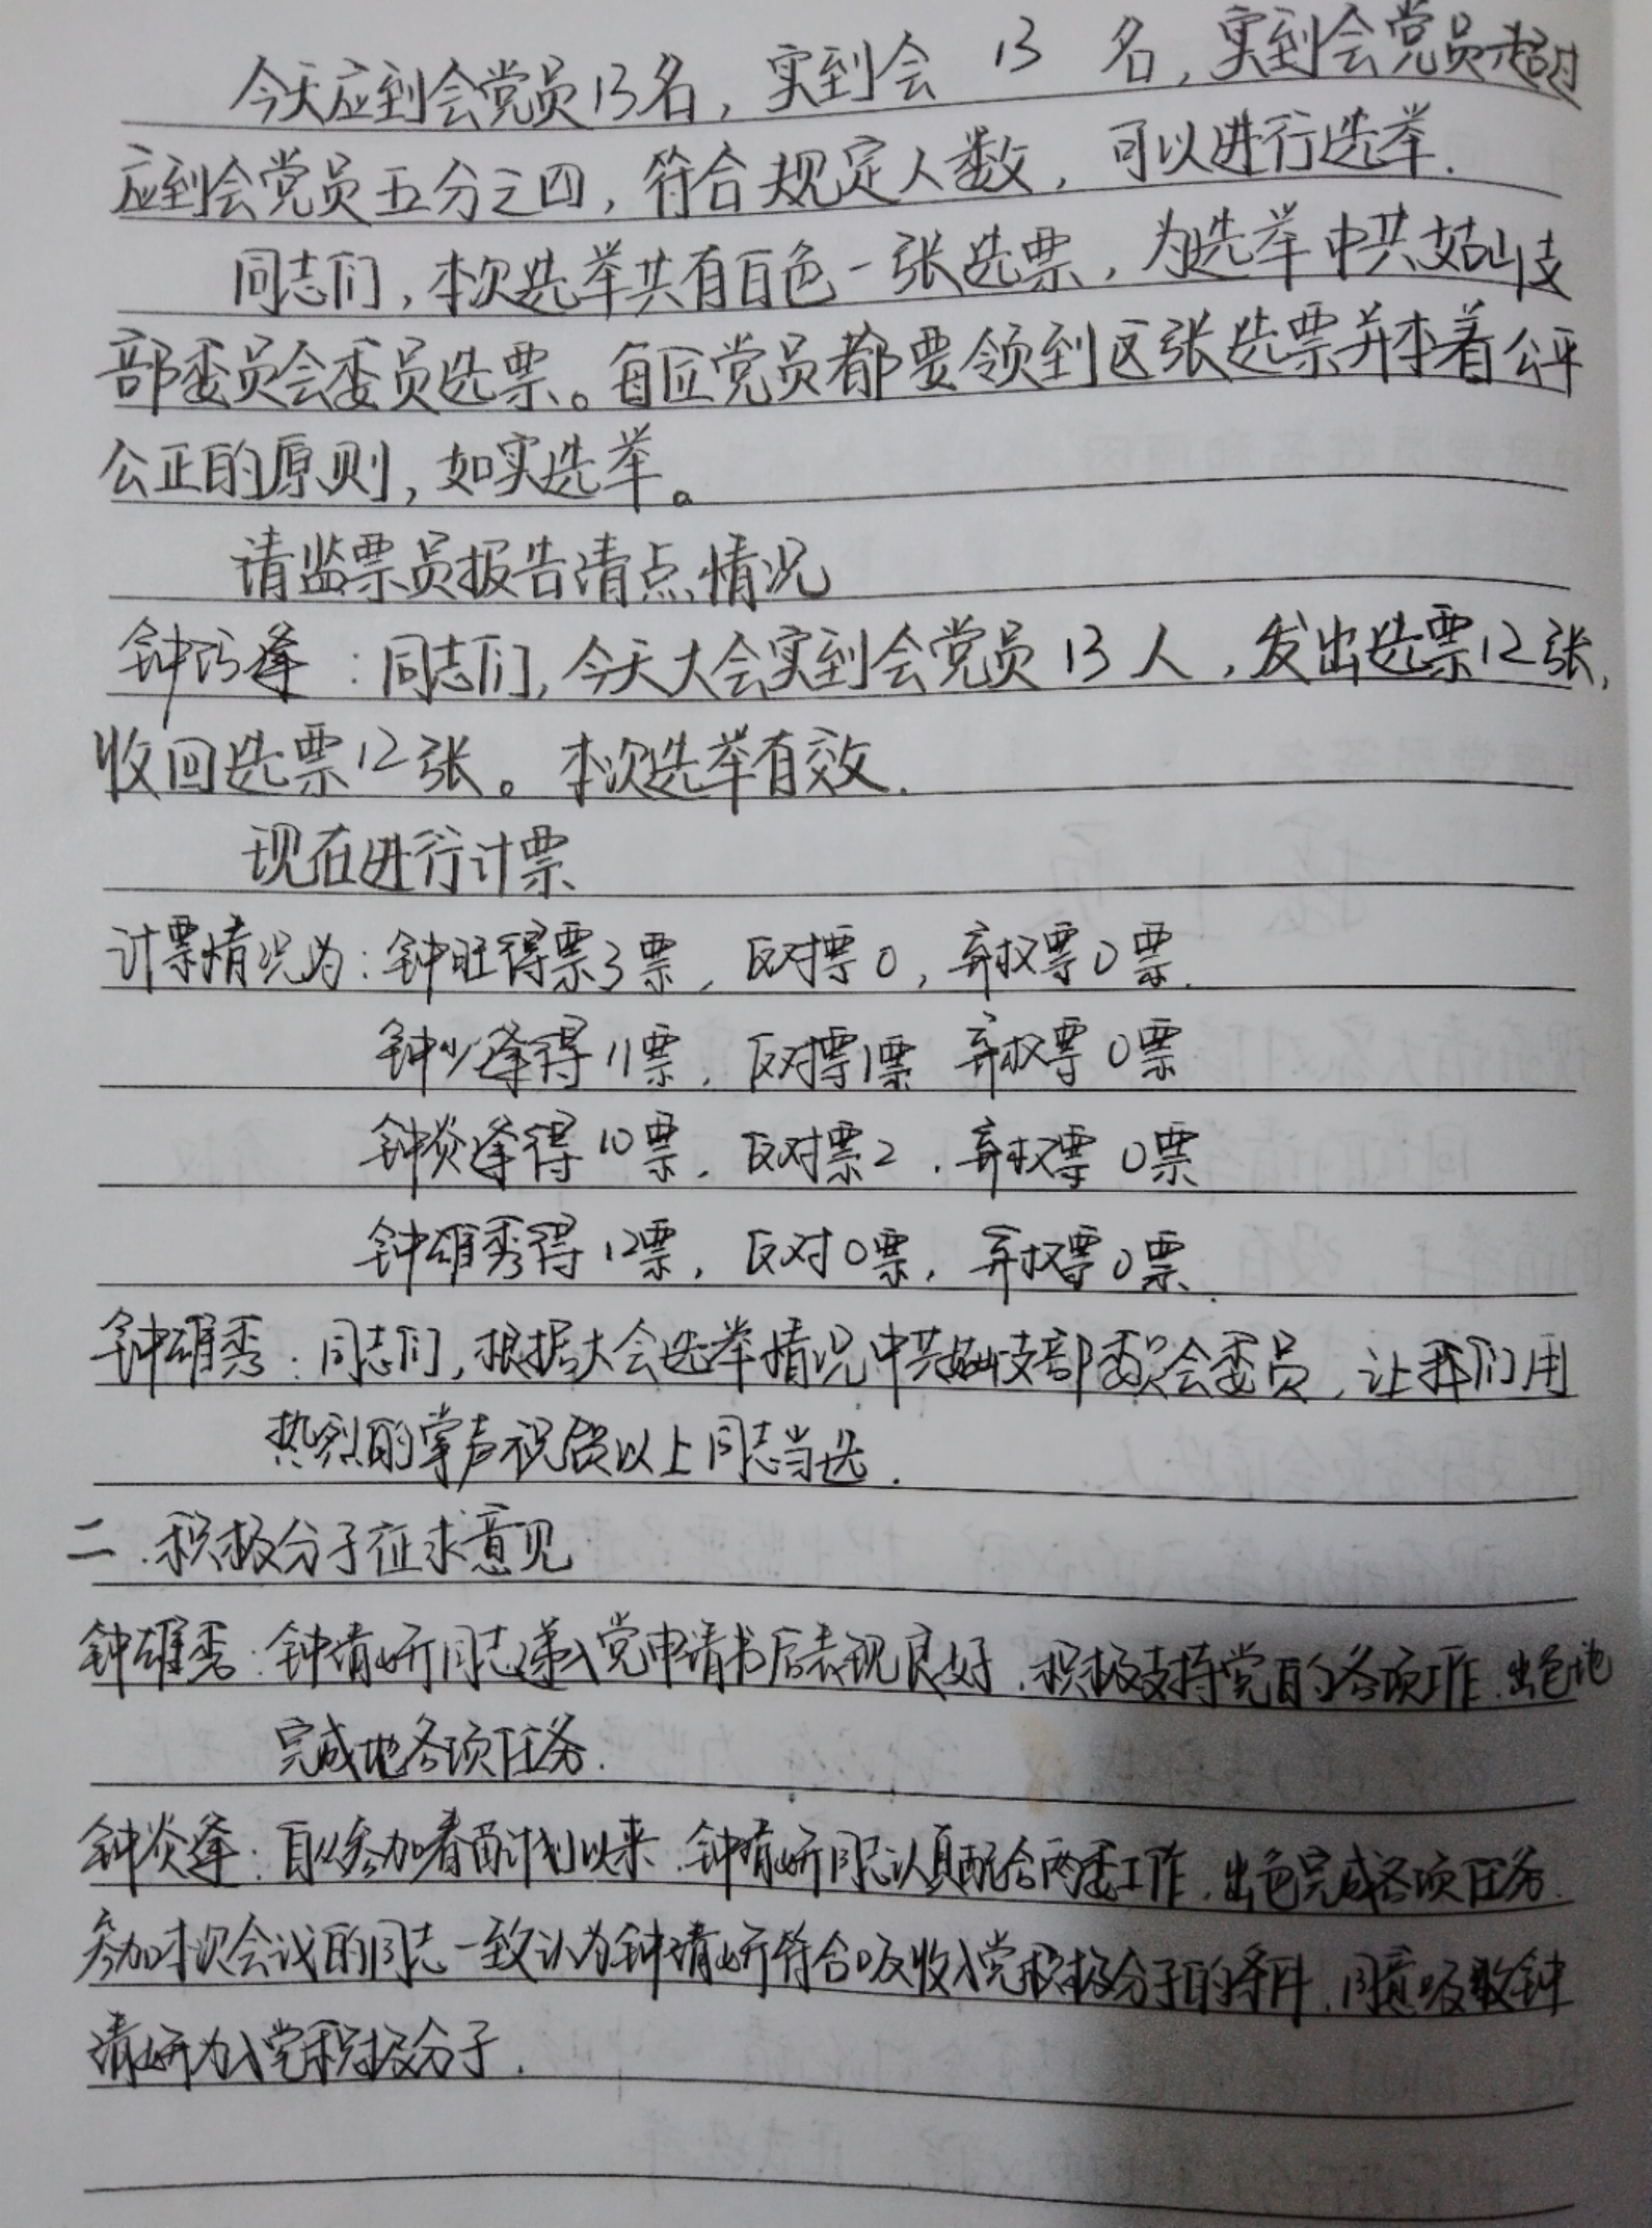 今天应到会党员13名，实到会 13 名，实到会党员超过
应到会党员五分之四，符合规定人数，可以进行选举.
同志们，本次选举共有白色一张选票，为选举中共姑山支
部委员会委员选票。每位党员都要领到这张选票并本着公平
公正的原则，如实选举。
请监票员报告清点情况
钟巧逢：同志们，今天大会实到会党员13人，发出选票12张，
收回选票12张。本次选举有效.
现在进行计票
计票情况为：钟旺得票3票，反对票0，弃权票0票.
钟少逢得11票，反对票1票 弃权票0票
钟炎逢得10票，反对票2，弃权票0票
钟雄秀得12票，反对0票，弃权票0票.
钟雄秀：同志们，根据大会选举情况中共姑山支部委员会委员，让我们用
热烈的掌声祝贺以上同志当选.
二.积极分子征求意见
钟雄秀：钟清妍同志递入党申请书后表现良好，积极支持党的各项工作，出色地
完成地各项任务.
钟炎逢：自从参加春苗计划以来，钟清妍同志认真配合两委工作，出色完成各项任务.
参加本次会议的同志一致认为钟清妍符合吸收入党积极分子的条件，同意吸收钟
清妍为入党积极分子.